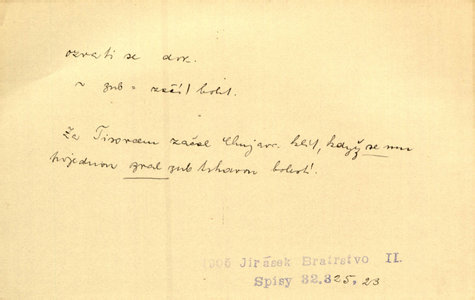 ozvati se dok.
~ zub = začíl bolet.
Za Tisovcem začal Chujava klít, když se mu
pojednou ozval zub trhavou bolestí.
1905 Jirásek Bratrstvo II.
Spisy 32.325.23